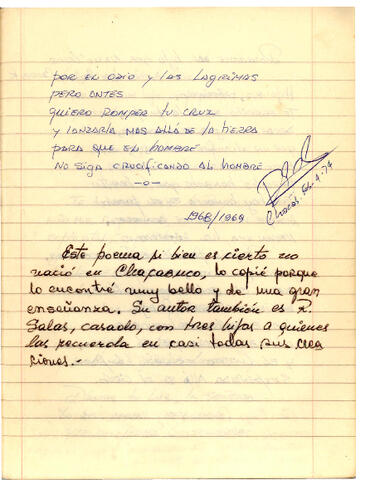 POR EL ODIO Y LAS LAGRIMAS
PERO ANTES
QUIERO ROMPER TU CRUZ
Y LANZARLA MAS ALLÁ DE LA TIERRA
PARA QUE EL HOMBRE
NO SIGA CRUCIFICANDO AL HOMBRE
-o-
1968/1969
Chacas.
Este poema si bien es cierto no
nació en Chacabuco, lo copié porque
lo encontré muy bello y de una gran
enseñanza. Su autor también es R.
Salas, casado, con tres hijas a quienes
las recuerda en casi todas sus crea
ciones.-